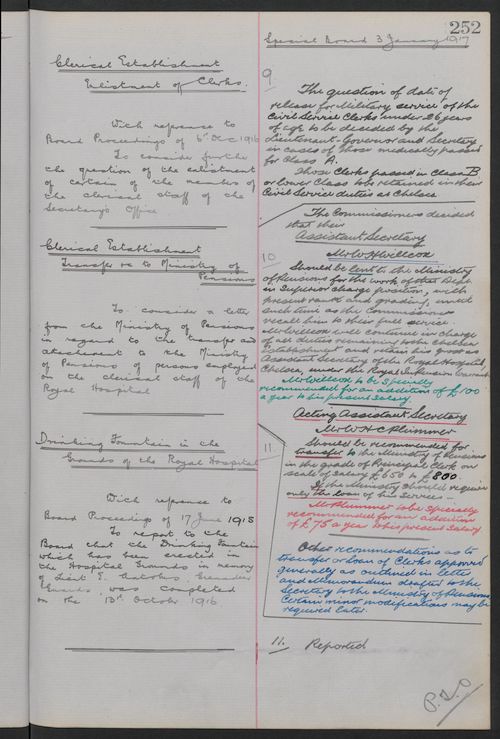 252
Special Board 3 January 1917
Clerical Establishment
Enlistment of Clerks.
With reference to
Board Proceedings of 6th Dec 1916
To consider further
the question of the enlistment
of certain of the members of
the clerical staff of the
Secretary's Office
9
The question of date of
release for Military service of the
Civil Service Clerks under 26 years
of age to be decided by the
Lieutenant-Governor and Secretary
in cases of those medically passed
for Class A.
Those Clerks passed in Class B
or lower Class to be retained in their
Civil Service duties at Chelsea
Clerical Establishment
Transfer &c to Ministry of
Pensions
To consider a letter
from the Ministry of Pensions
in regard to the transfer and
attachment to the Ministry
of Pensions of persons employed
on the clerical staff of the
Royal Hospital
10
The Commissioners decided
that their
Assistant Secretary
Mr W H Willcox
Should be lent to the Ministry
of Pensions for the work of that Dept
in Superior charge position, with
present rank and grading, until
such time as the Commissioners
recall him to their full service.
Mr Willcox will continue in charge
of all duties remaining to the Chelsea
Establishment and retain his post as
Assistant Secretary of the Royal Hospital
Chelsea, under the Royal Warrant
Mr Willcox to be specially
recommended for an addition of £100
a year to his present salary.
Acting Assistant Secretary
Mr W H C Plummer
Should be recommended for
transfer to the Ministry of Pensions
in the grade of Principal Clerk on
scale of Salary £650 to £800
If the Ministry should require
only the loan of his services —
Mr Plummer to be specially
recommended for an addition
of £75 a year to his present salary
Other recommendations as to
transfer or loan of Clerks approved
generally as outlined in letter
and Memorandum drafted to the
Secretary to the Ministry of Pensions
Certain minor modifications may be
required later.
Drinking Fountain in the
Grounds of the Royal Hospital
11.
With reference to
Board Proceedings of 17 June 1915
To report to the
Board that the Drinking Fountain
which has been erected in
the Hospital Grounds in memory
of Lieut E. Grenadier
Guards, was completed
on the 13th October 1916
11. Reported
P.T.O